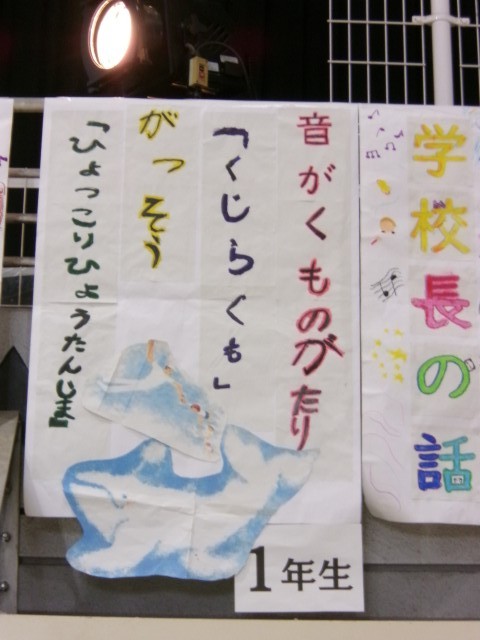 学校長の話
音がくものがたり
「くじらくも」
がっそう
「ひょっこりひょうたん島」
1年生